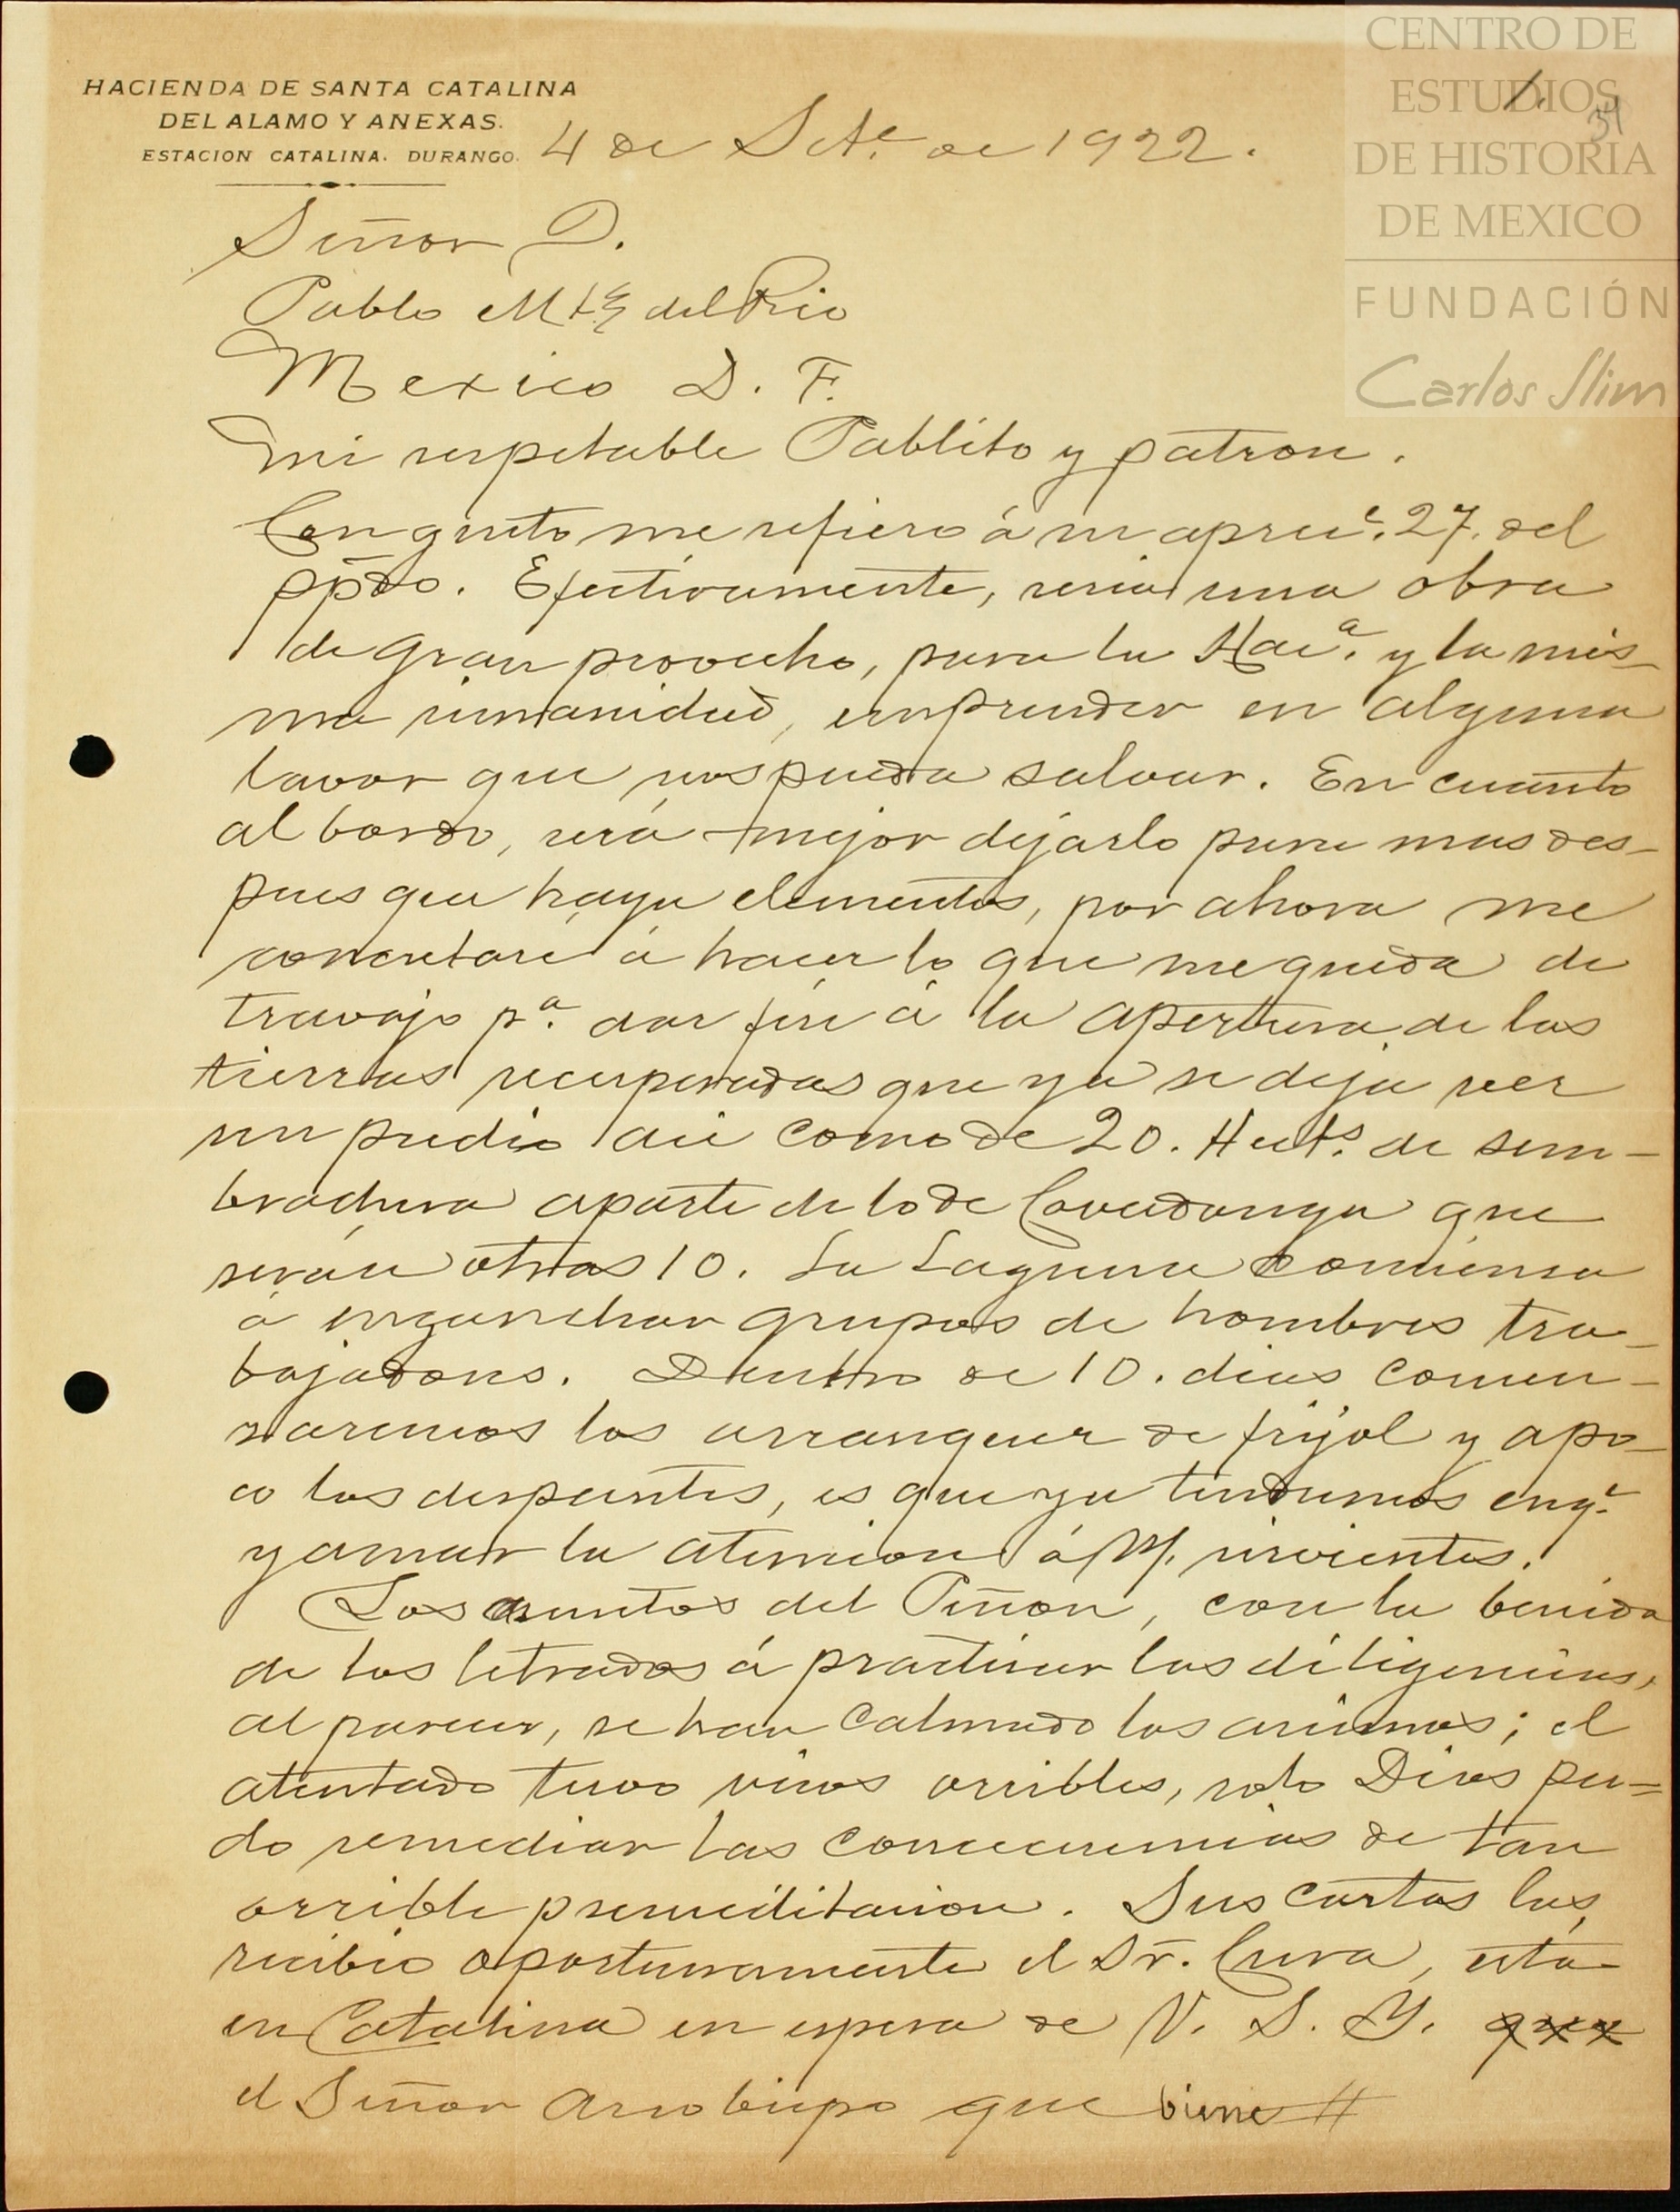 HACIENDA DE SANTA CATALINA
DEL ALAMO Y ANEXAS.
ESTACION CATALINA. DURANGO.
4 de Sete. de 1922.
CENTRO DE
ESTUDIOS
DE HISTORIA
DE MEXICO
FUNDACIÓN
Carlos Slim
1.
34
Señor D.
Pablo Mtz del Rio
Mexico D. F.
Mi respetable Pablito y patron.
Con gusto me refiero á su aprece. 27. del
ppdo. Efectivamente, seria una obra
de gran provecho, para la Haca. y la mis-
ma umanidad, emprender en alguna
lavor que nos pueda salvar. En cuanto
al bordo, será mejor dejarlo para mas des-
pues que haya elementos, por ahora me
concretaré á hacer lo que me queda de
travajo pa. dar fin á la apertura de las
tierras recuperadas que ya se deja ver
un predio asi como de 20. Hects. de sem-
bradura aparte de lo de Covadonga que
serán otras 10. La Laguna comiensa
á enganchar grupos de hombres tra-
bajadores. Dentro de 10. dias comen-
saremos los arranques de frijol y apo-
co los despuntes, es que ya tendremos enqe.
yamar la atencion á M. sirvientes.
Los asuntos del Piñon, con la benida
de los letrados á practicar las diligencias,
al parecer, se han calmado los animos; el
atentado tuvo visos orribles, solo Dios pu=
do remediar las concecuencias de tan
orrible premeditacion. Sus cartas las
recibió oportunamente el Sr. Cura, está
en Catalina en espera de V. S. Y.
el Señor Arzobispo que biene #